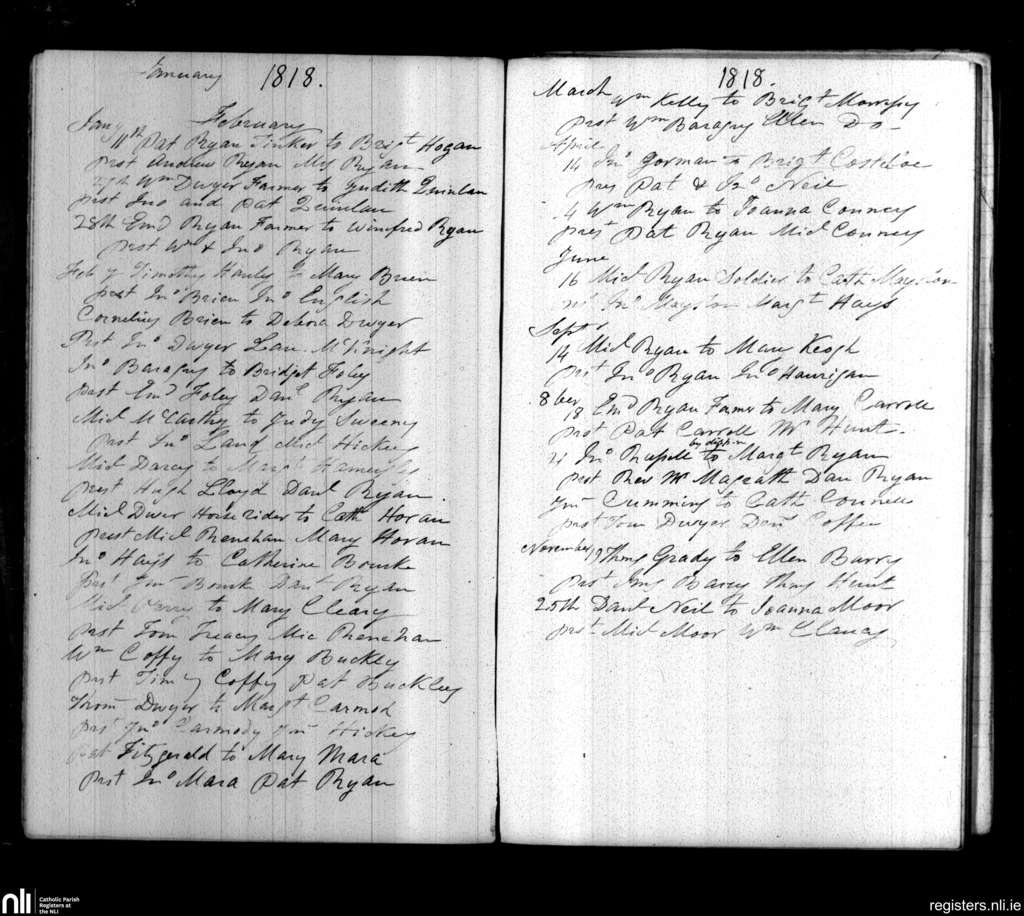 January 1818.
February
Jany 11th Pat Ryan Tinker to Brigt Hogan
prst Andrew Ryan Mgt Ryan
27th Wm Dwyer Farmer to Judith Quinlan
prst Jno and Pat Quinlan
28th Emd Ryan Farmer to Winefred Ryan
prst Wm & Jno Ryan
Feb 7 Timothy Hanly to Mary Brien
prst Jno Brien Jno English
Cornelius Brien to Debora Dwyer
Prst Jno Dwyer Lau. McKnight
Jno Baragry to Bridget Foley
prst Emd Foley Danl Ryan
Mid McCarthy to Judy Sweeny
prst Jno Land Mid Hickey
Mid Darcy to Margt
prest Hugh Lloyd Danl Ryan.
Mid Dwer Horse rider to Cath Horan
prest Mid Renehan Mary Horan
Jno Hays to Catherine Bourke
prst Jno Bourk Danl Ryan
Mid to Mary Cleary
prst Tom Treacy Mic Renehan
Wm Coffy to Mary Buckley
prst Timy Coffy Pat Buckley
Thom Dwyer to Margt Carmod
prst Jno Carmody Hickey
Pat Fitzgerald to Mary Mara
prst Jno Mara Pat Ryan
1818.
March Wm Kelly to Brigt
prst Wm Baragry Ellen Do-
April
14 Jno Gorman to Brigt Costeloe
pres Pat & Jno Neil
4 Wm Ryan to Joanna Conney
prest Pat Ryan Mid Conney
June
16 Mid Ryan Soldier to Cath
Jno Margt Hays
Sept
14 Mid Ryan to Mary Keogh
prst Jno Ryan Jno Hourigan
8ber 18 Emd Ryan Famer to Mary Carroll
prst Pat Carroll Wm Hunt.
21 Jno by dispn to Margt Ryan
prst Rev Mr Magrath Dan Ryan
Cumming to Cath Connell
prst Tom Dwyer Danl Coffee
November 19 Thms Grady to Ellen Barry
prst Jms Barry Thms Hunt
25th Danl Neil to Joanna Moor
prst Mid Moor Wm Clancy
nli
Catholic Parish
Registers at
the NLI
registers.nli.ie